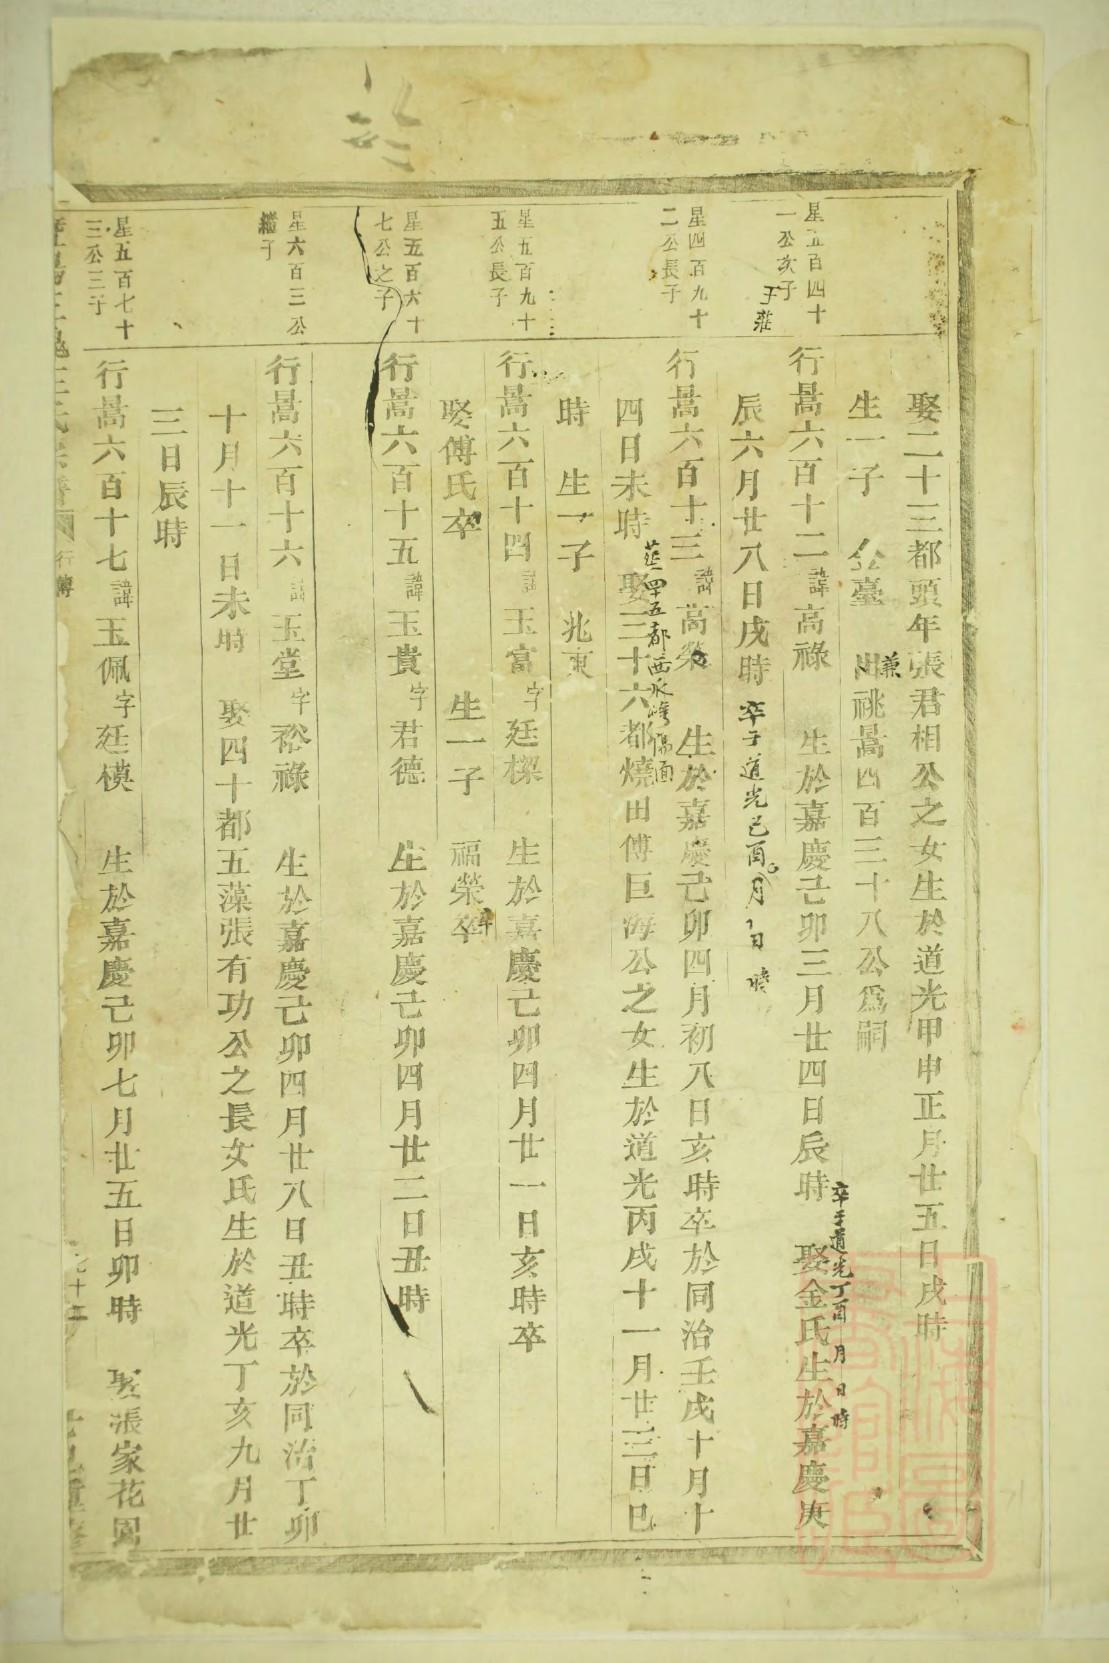 娶二十三都頭年張君相公之女生於道光甲申正月廿五日戌時
生一子 金臺 兼祧暠四百三十八公爲嗣
星五百四十
一公次子
于莊
行暠六百十二諱高祿 生於嘉慶己卯三月廿四日辰時 娶金氏生於嘉慶庚
卒于道光丁酉 月 日 時
辰六月廿八日戌時 卒于道光己酉 月 日 時
星四百九十
二公長子
行暠六百十三諱高榮 生於嘉慶己卯四月初八日亥時卒於同治壬戌十月十
四日未時 娶二十六都燒田傅巨海公之女生於道光丙戌十一月廿三日巳
四五都西
時 生一子 兆東
星五百九十
五公長子
行暠六百十四諱玉富字廷樑 生於嘉慶己卯四月廿一日亥時卒
娶傅氏卒 生一子 福榮卒
星五百六十
七公之子
行暠六百十五諱玉貴字君德 生於嘉慶己卯四月廿二日丑時
星六百三公
繼子
行暠六百十六諱玉堂字裕祿 生於嘉慶己卯四月廿八日丑時卒於同治丁卯
十月十一日未時 娶四十都五藻張有功公之長女氏生於道光丁亥九月廿
三日辰時
星五百七十
三公三子
行暠六百十七諱玉佩字廷模 生於嘉慶己卯七月廿五日卯時 娶張家花園
行傳